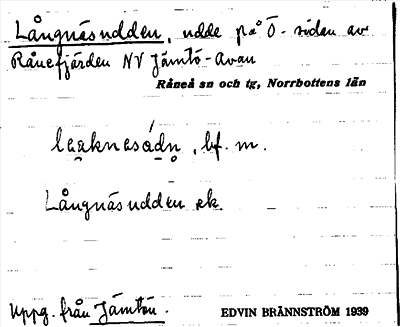 Långnäsudden, udde på Ö-sidan av
Rånefjärden NV Jämtö-Avan
Råneå sn och tg, Norrbottens län
laaknesådn, bf. m.
Långnäsudden ek.
Uppg. från Jämtön.
EDVIN BRÄNNSTRÖM 1939